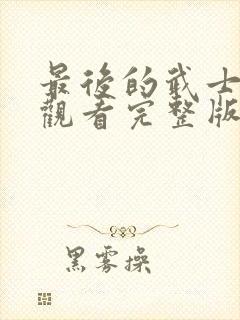 最後的武士
觀看完整版
黑雾操